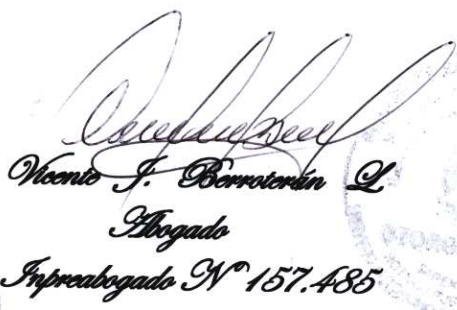 Vicente J. Berroterán L
Abogado
Inpreabogado Nº 157.485